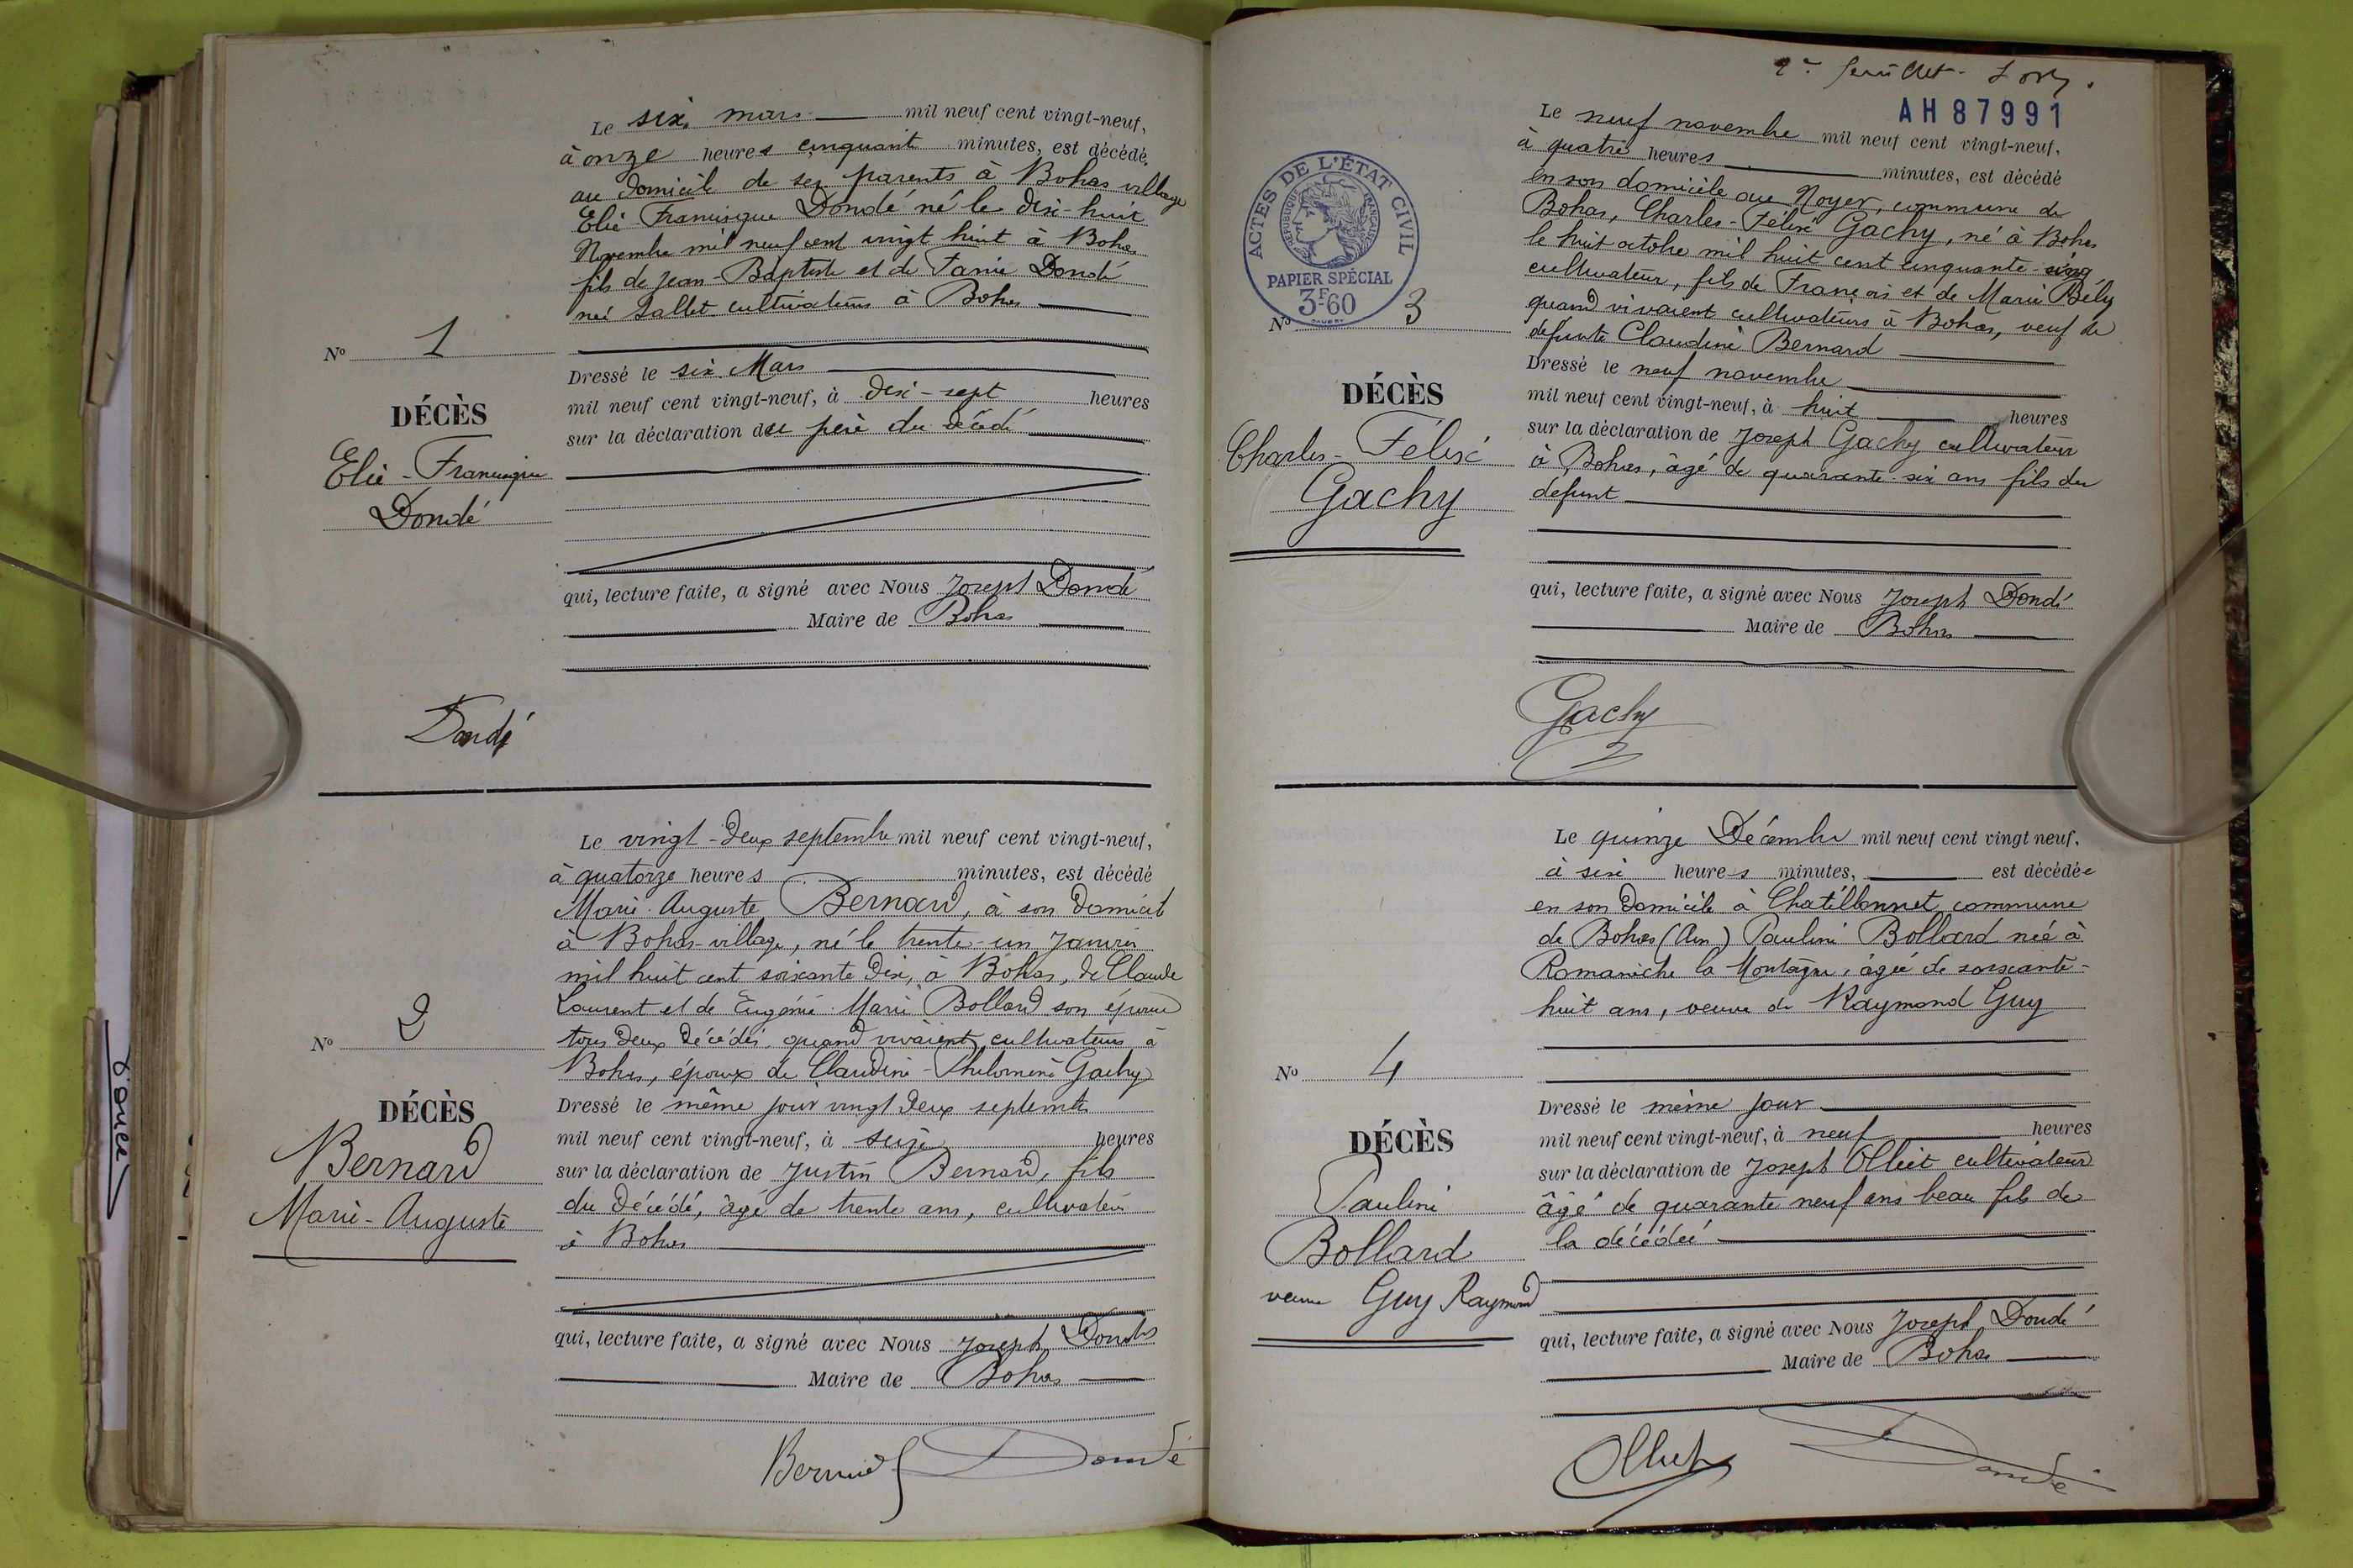 Le six mars mil neuf cent vingt-neuf,
à onze heures cinquant minutes, est décédé
au domicile de ses parents à Bohas village
Elie Francisque Dondé né le dix-huit
Novembre mil neuf cent vingt huit à Bohas
fils de Jean-Baptiste et de Fanie Dondé
née Sallet cultivateurs à Bohas
Nº 1
DÉCÈS
Elie-Francisque
Dondé
Dressé le six Mars
mil neuf cent vingt-neuf, à dix-sept heures
sur la déclaration du père du décédé
qui, lecture faite, a signé avec Nous Joseph Dondé
Maire de Bohas
Dondé
Le vingt-deux septembre mil neuf cent vingt-neuf,
à quatorze heures minutes, est décédé
Marie-Auguste Bernard, à son domicile
à Bohas-village, né le trente-un Janvier
mil huit cent soixante dix, à Bohas, de Claude
Laurent et de Eugénie-Marie Bollard son épouse
tous deux décédés, quand vivaient cultivateurs à
Bohas, époux de Claudine-Philomène Gachy
Nº 2
DÉCÈS
Bernard
Marie-Auguste
Dressé le même jour vingt deux septembre
mil neuf cent vingt-neuf, à seize heures
sur la déclaration de Justin Bernard, fils
du décédé, âgé de trente ans, cultivateur
à Bohas
qui, lecture faite, a signé avec Nous Joseph Dondé
Maire de Bohas
Bernard Dondé
2e feuillet
AH 87991
Le neuf novembre mil neuf cent vingt-neuf,
à quatre heures minutes, est décédé
en son domicile au Noyer, commune de
Bohas, Charles-Félix Gachy, né à Bohas
le huit octobre mil huit cent cinquante-cinq
cultivateur, fils de François et de Marie Bély
quand vivaient cultivateurs à Bohas, veuf de
défunte Claudine Bernard
ACTES DE L'ÉTAT CIVIL
RÉPUBLIQUE FRANÇAISE
PAPIER SPÉCIAL
3F-60
Nº 3
DÉCÈS
Charles-Félix
Gachy
Dressé le neuf novembre
mil neuf cent vingt-neuf, à huit heures
sur la déclaration de Joseph Gachy cultivateur
à Bohas, âgé de quarante-six ans fils du
défunt
qui, lecture faite, a signé avec Nous Joseph Dondé
Maire de Bohas
Gachy
Le quinze Décembre mil neuf cent vingt neuf,
à six heures minutes, est décédée
en son domicile à Chatillonnet commune
de Bohas (Ain) Pauline Bollard née à
Romanèche la Montagne, âgée de soixante-
huit ans, veuve de Raymond Guy
Nº 4
DÉCÈS
Pauline
Bollard
veuve Guy Raymond
Dressé le même jour
mil neuf cent vingt-neuf, à neuf heures
sur la déclaration de Joseph Olliet cultivateur
âgé de quarante neuf ans beau fils de
la décédée
qui, lecture faite, a signé avec Nous Joseph Dondé
Maire de Bohas
Olliet Dondé